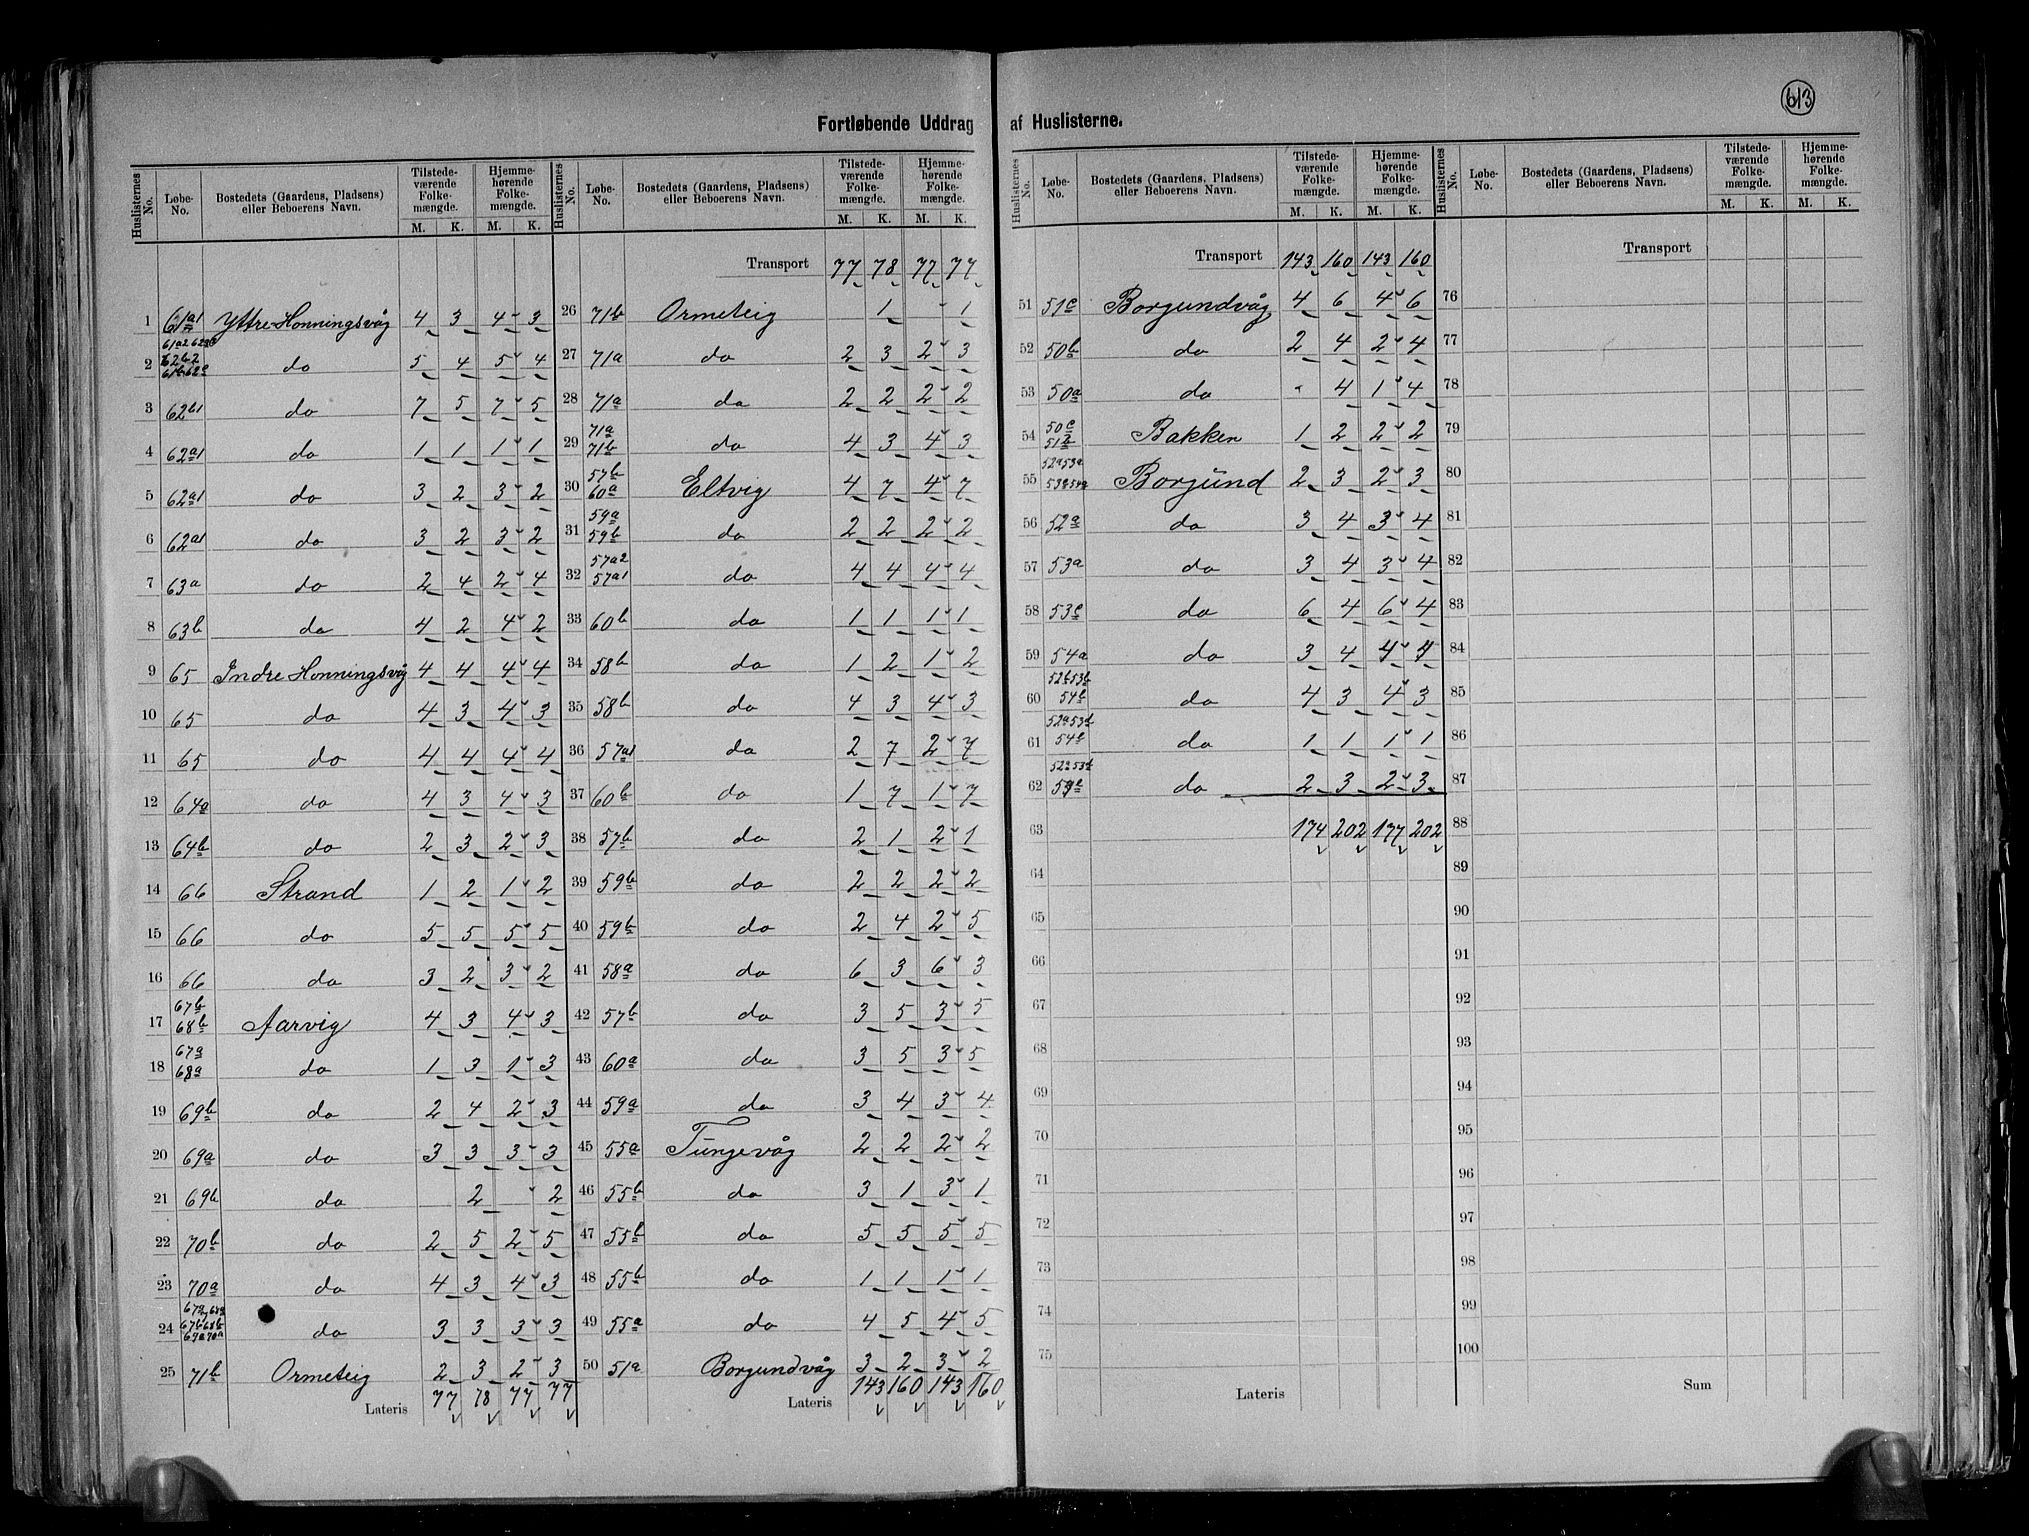 613
Fortløbende Uddrag af Huslisterne.
Huslisternes No. Løbe-No. Bostedets (Gaardens, Pladsens) eller Beboerens Navn. Tilstedeværende Folkemængde. M. K. Hjemmehørende Folkemængde. M. K.
1 61a1 Yttre Honningsvåg 4 3 4 3
2 do 5 4 5 4
3 62b1 do 7 5 7 5
4 62a1 do 1 1 1 1
5 62a1 do 3 2 3 2
6 62a1 do 3 2 3 2
7 63a do 2 4 2 4
8 63b do 4 2 4 2
9 65 Indre Honningsvåg 4 4 4 4
10 65 do 4 3 4 3
11 65 do 4 4 4 4
12 64a do 4 3 4 3
13 64b do 2 3 2 3
14 66 Strand 1 2 1 2
15 66 do 5 5 5 5
16 66 do 3 2 3 2
17 67b 68b Aarvig 4 3 4 3
18 67a 68a do 1 3 1 3
19 69b do 2 4 2 3
20 69a do 3 3 3 3
21 69b do 2 2
22 70b do 2 5 2 5
23 70a do 4 3 4 3
24 do 3 3 3 3
25 71b Ormeteig 2 3 2 3
Lateris 77 78 77 77
Huslisternes No. Løbe-No. Bostedets (Gaardens, Pladsens) eller Beboerens Navn. Tilstedeværende Folkemængde. M. K. Hjemmehørende Folkemængde. M. K.
Transport 77 78 77 77
26 71b Ormeteig 1 1
27 71a do 2 3 2 3
28 71a do 2 2 2 2
29 71a 71b do 4 3 4 3
30 57b 60a Eltvig 4 7 4 7
31 59a 59b do 2 2 2 2
32 57a2 57a1 do 4 4 4 4
33 60b do 1 1 1 1
34 58b do 1 2 1 2
35 58b do 4 3 4 3
36 57a1 do 2 7 2 7
37 60b do 1 7 1 7
38 57b do 2 1 2 1
39 59b do 2 2 2 2
40 59b do 2 4 2 5
41 58a do 6 3 6 3
42 57b do 3 5 3 5
43 60a do 3 5 3 5
44 59a do 3 4 3 4
45 55a Tungevåg 2 2 2 2
46 55b do 3 1 3 1
47 55b do 5 5 5 5
48 55b do 1 1 1 1
49 55a do 4 5 4 5
50 51a Borgundvåg 3 2 3 2
Lateris 143 160 143 160
Huslisternes No. Løbe-No. Bostedets (Gaardens, Pladsens) eller Beboerens Navn. Tilstedeværende Folkemængde. M. K. Hjemmehørende Folkemængde. M. K.
Transport 143 160 143 160
51 51c Borgundvåg 4 6 4 6
52 50b do 2 4 2 4
53 50a do - 4 1 4
54 50c 51b Bakken 1 2 2 2
55 Borgund 2 3 2 3
56 52a do 3 4 3 4
57 53a do 3 4 3 4
58 53c do 6 4 6 4
59 54a do 3 4 4 4
60 52b 53b 54b do 4 3 4 3
61 do 1 1 1 1
62 do 2 3 2 3
63 174 202 177 202
64
65
66
67
68
69
70
71
72
73
74
75
Lateris
Huslisternes No. Løbe-No. Bostedets (Gaardens, Pladsens) eller Beboerens Navn. Tilstedeværende Folkemængde. M. K. Hjemmehørende Folkemængde. M. K.
Transport
76
77
78
79
80
81
82
83
84
85
86
87
88
89
90
91
92
93
94
95
96
97
98
99
100
Sum